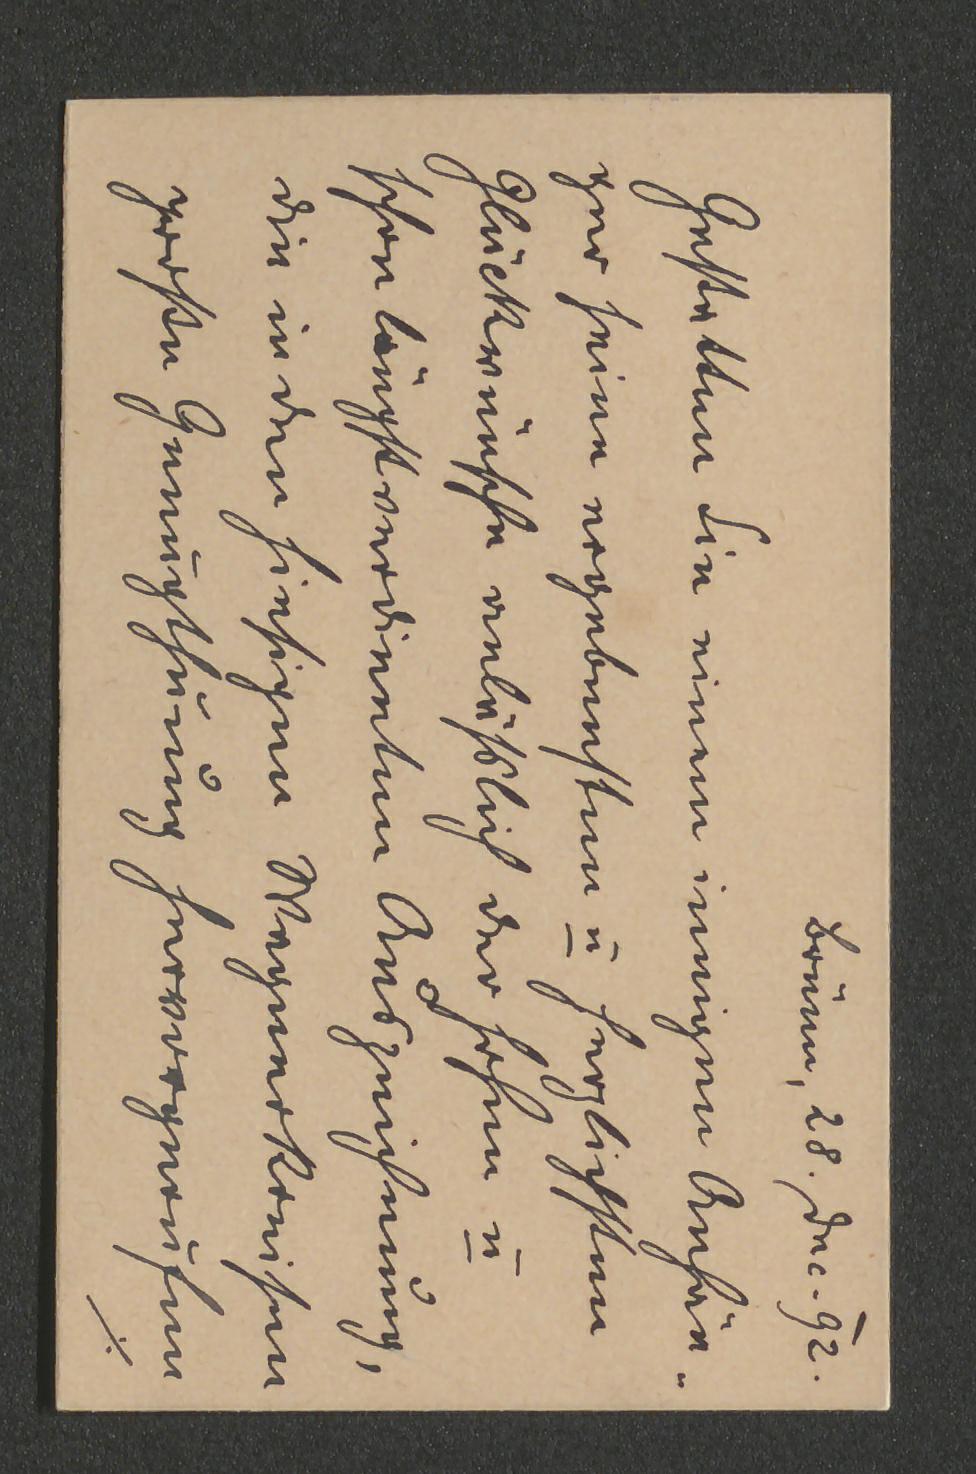 Brünn, 28. Dec. 92.
Gestatten Sie einem innigen Anhän-
ger seine ergebensten u herzlichsten
Glückwünsche anläßlich der hohen u
schon längst verdienten Auszeichnung,
die in den hiesigen Wagnerkreisen
große Genugthuung hervorgerufen
./.